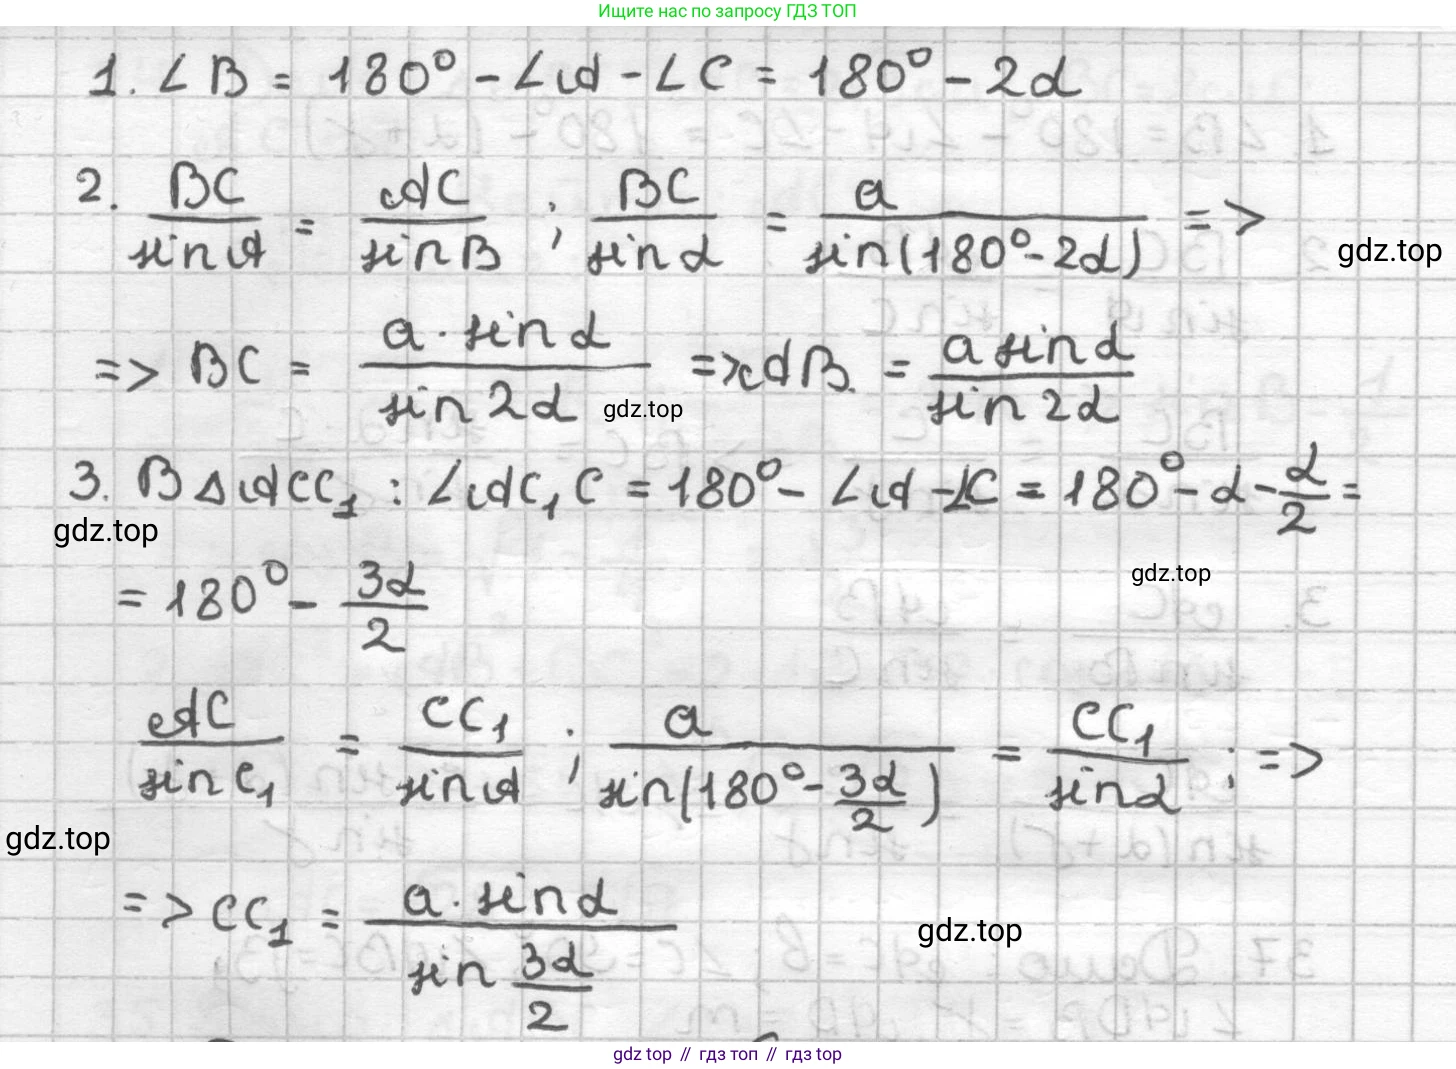 Ищите нас по запросу ГДЗ ТОП
1. ∠B = 180° - ∠A - ∠C = 180° - 2α
2. BC/sin A = AC/sin B ; BC/sin α = a/sin(180° - 2α) =>
gdz.top
=> BC = a · sin α/sin 2α => AB = a sin α/sin 2α
gdz.top
3. В △ACC₁ : ∠AC₁C = 180° - ∠A - ∠C = 180° - α - α/2 =
gdz.top
gdz.top
= 180° - 3α/2
AC/sin C₁ = CC₁/sin A ; a/sin(180° - 3α/2) = CC₁/sin α ; =>
gdz.top
=> CC₁ = a · sin α/sin 3α/2
gdz.top
gdz top // гдз топ // гдз top